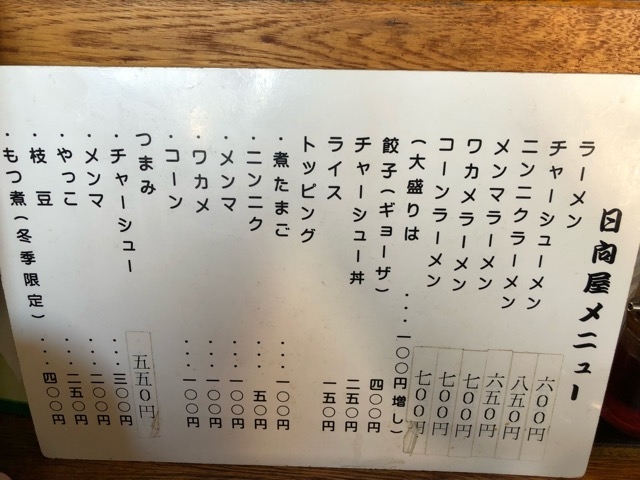 日向屋メニュー
ラーメン 六〇〇円
チャーシューメン 八五〇円
ニンニクラーメン 六五〇円
メンマラーメン 七〇〇円
ワカメラーメン 七〇〇円
コーンラーメン 七〇〇円
(大盛りは ...一〇〇円増し)
餃子(ギョーザ) 四〇〇円
チャーシュー丼 二五〇円
ライス 一五〇円
トッピング
・煮たまご ...一〇〇円
・ニンニク ...五〇円
・メンマ ...一〇〇円
・ワカメ ...一〇〇円
・コーン ...一〇〇円
つまみ
・チャーシュー 五五〇円
・メンマ ...三〇〇円
・やっこ ...二〇〇円
・枝豆 ...二五〇円
・もつ煮(冬季限定)...四〇〇円